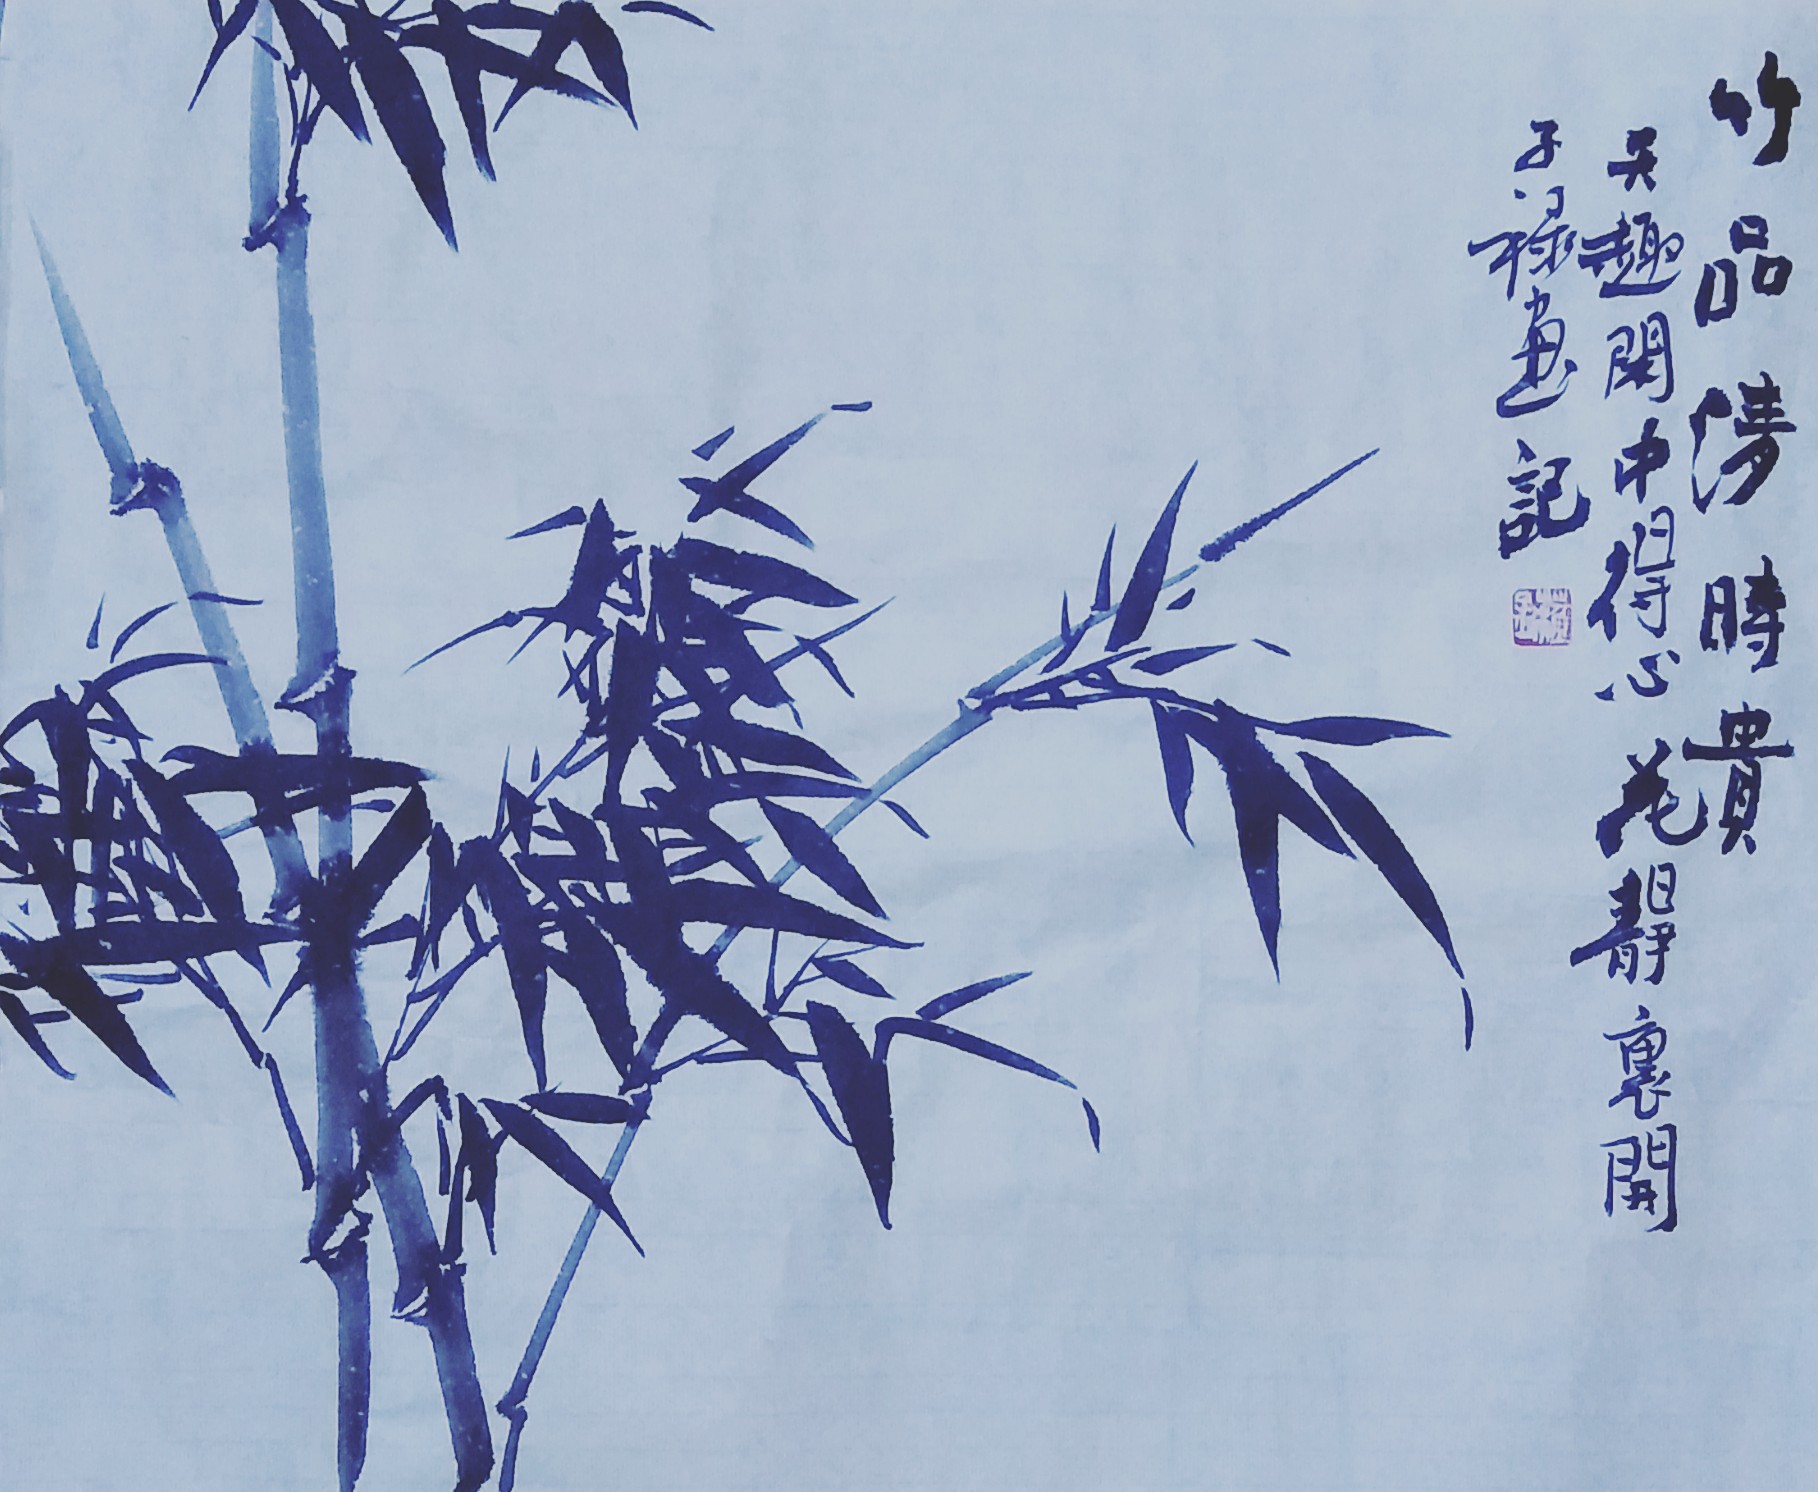 竹品清時貴
天趣閑中得心花靜裏開
子祿畫記